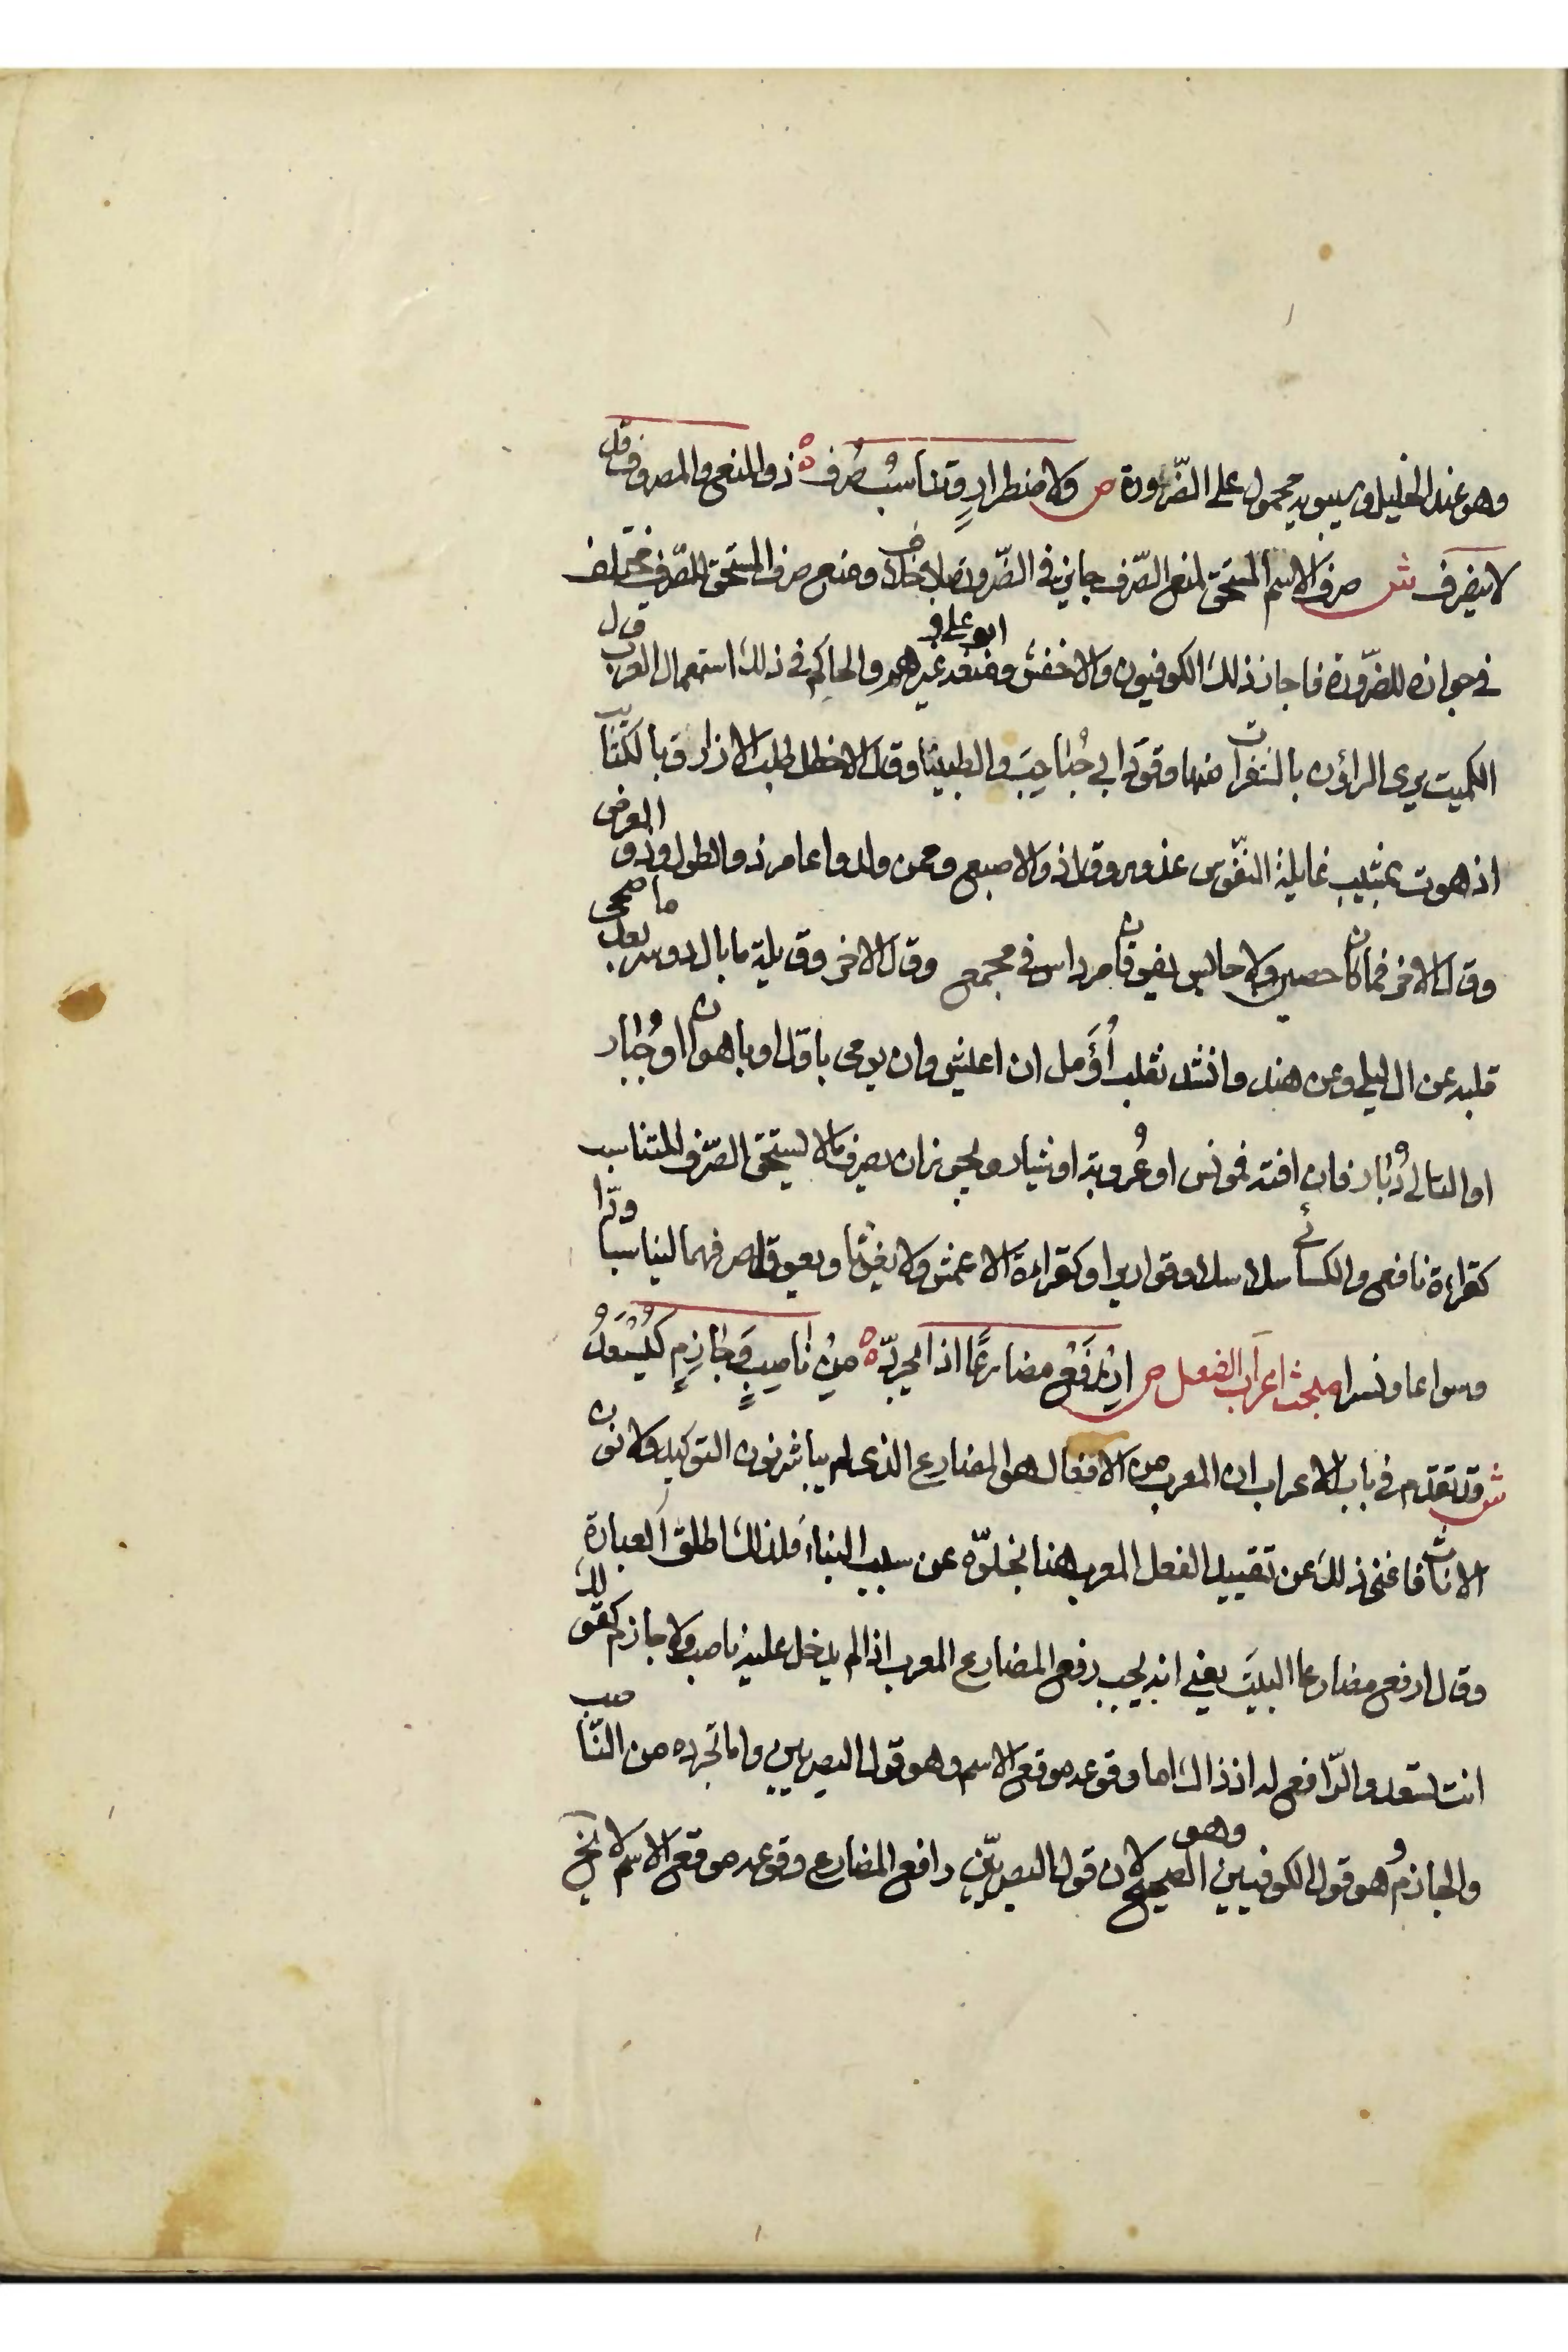 وهو عند الخليل وسيبويه محمول على الضّرورة ص ولاضطرارٍ وتناسبٍ صُرف ذو المنع والمصروف قد
لا ينصرف ش صرف الاسم المستحق لمنع الصّرف جايز في الضّرورة بلا خلاف ومنع صرف المستحق للصّرف مختلف
في جوازه للضّرورة فاجاز ذلك الكوفيون والاخفش وابو علي ومنعه غيرهم والحاكم في ذلك استعمال العرب قال
الكميت يرى الراؤن بالشفرات منها وقود ابي حُباحِبَ والظبينا وقال الاخطل طلب الازارق بالكتايب
اذ هوت بشبيب غايلة النّفوس غدور وقال ذو الاصبع وممن ولدوا عامر ذو الطول وذو العرض
وقال الاخر فما كان حصن ولا حابس يفوقان مرداس في مجمع وقال الاخر وقايلة ما بال دوسر بعدنا صحى
قلبه عن ال ليلى وعن هند وانشد ثعلب اُؤَمل ان اعيش وان يومي باول او باهون او جُبار
او التالي دُبار فان افته فمونس او عُروبة او شيار ويجوز ان يصرف ما لا يستحق الصّرف للتناسب
كقراءة نافع والكسائي سلاسلا وقواريرا وكقراءة الاعمش ولا يغوثا ويعوقا صرفهما ليناسبا ودّا
وسواعا ونسرا مبحث اعراب الفعل ص اِرْفَعْ مضارعًا اذا يجرّد مِنْ ناصِبٍ وَجازِمٍ كَتُسْعَدُ
ش قد تقدم في باب الاعراب ان المعرب من الافعال هو المضارع الذي لم يباشر نون التوكيد ولا نون
الاناث فاغنى ذلك عن تقييد الفعل المعرب هنا بخلوّه عن سبب البناء فلذلك اطلق العبارة
وقال ارفع مضارعا البيت يعني انه يجب رفع المضارع المعرب اذا لم يدخل عليه ناصب ولا جازم كقولك
انت تسعد والرّافع له اذ ذاك اما وقوعه موقع الاسم وهو قول البصريين واما تجرده من النّاصب
والجازم وهو قول الكوفيين وهو الصحيح لان قول البصريّين رافع المضارع وقوعه موقع الاسم لا يخ